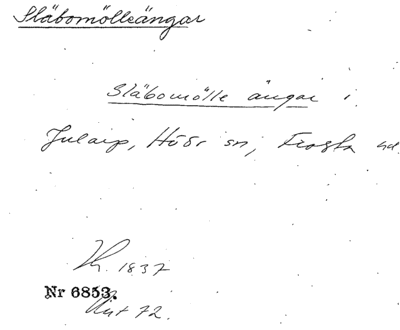 Släbomölleängar
Släbomölle ängar i
Jularp, Höör sn, Frosta hd.
1837
Nr 6853.
Avt 72.